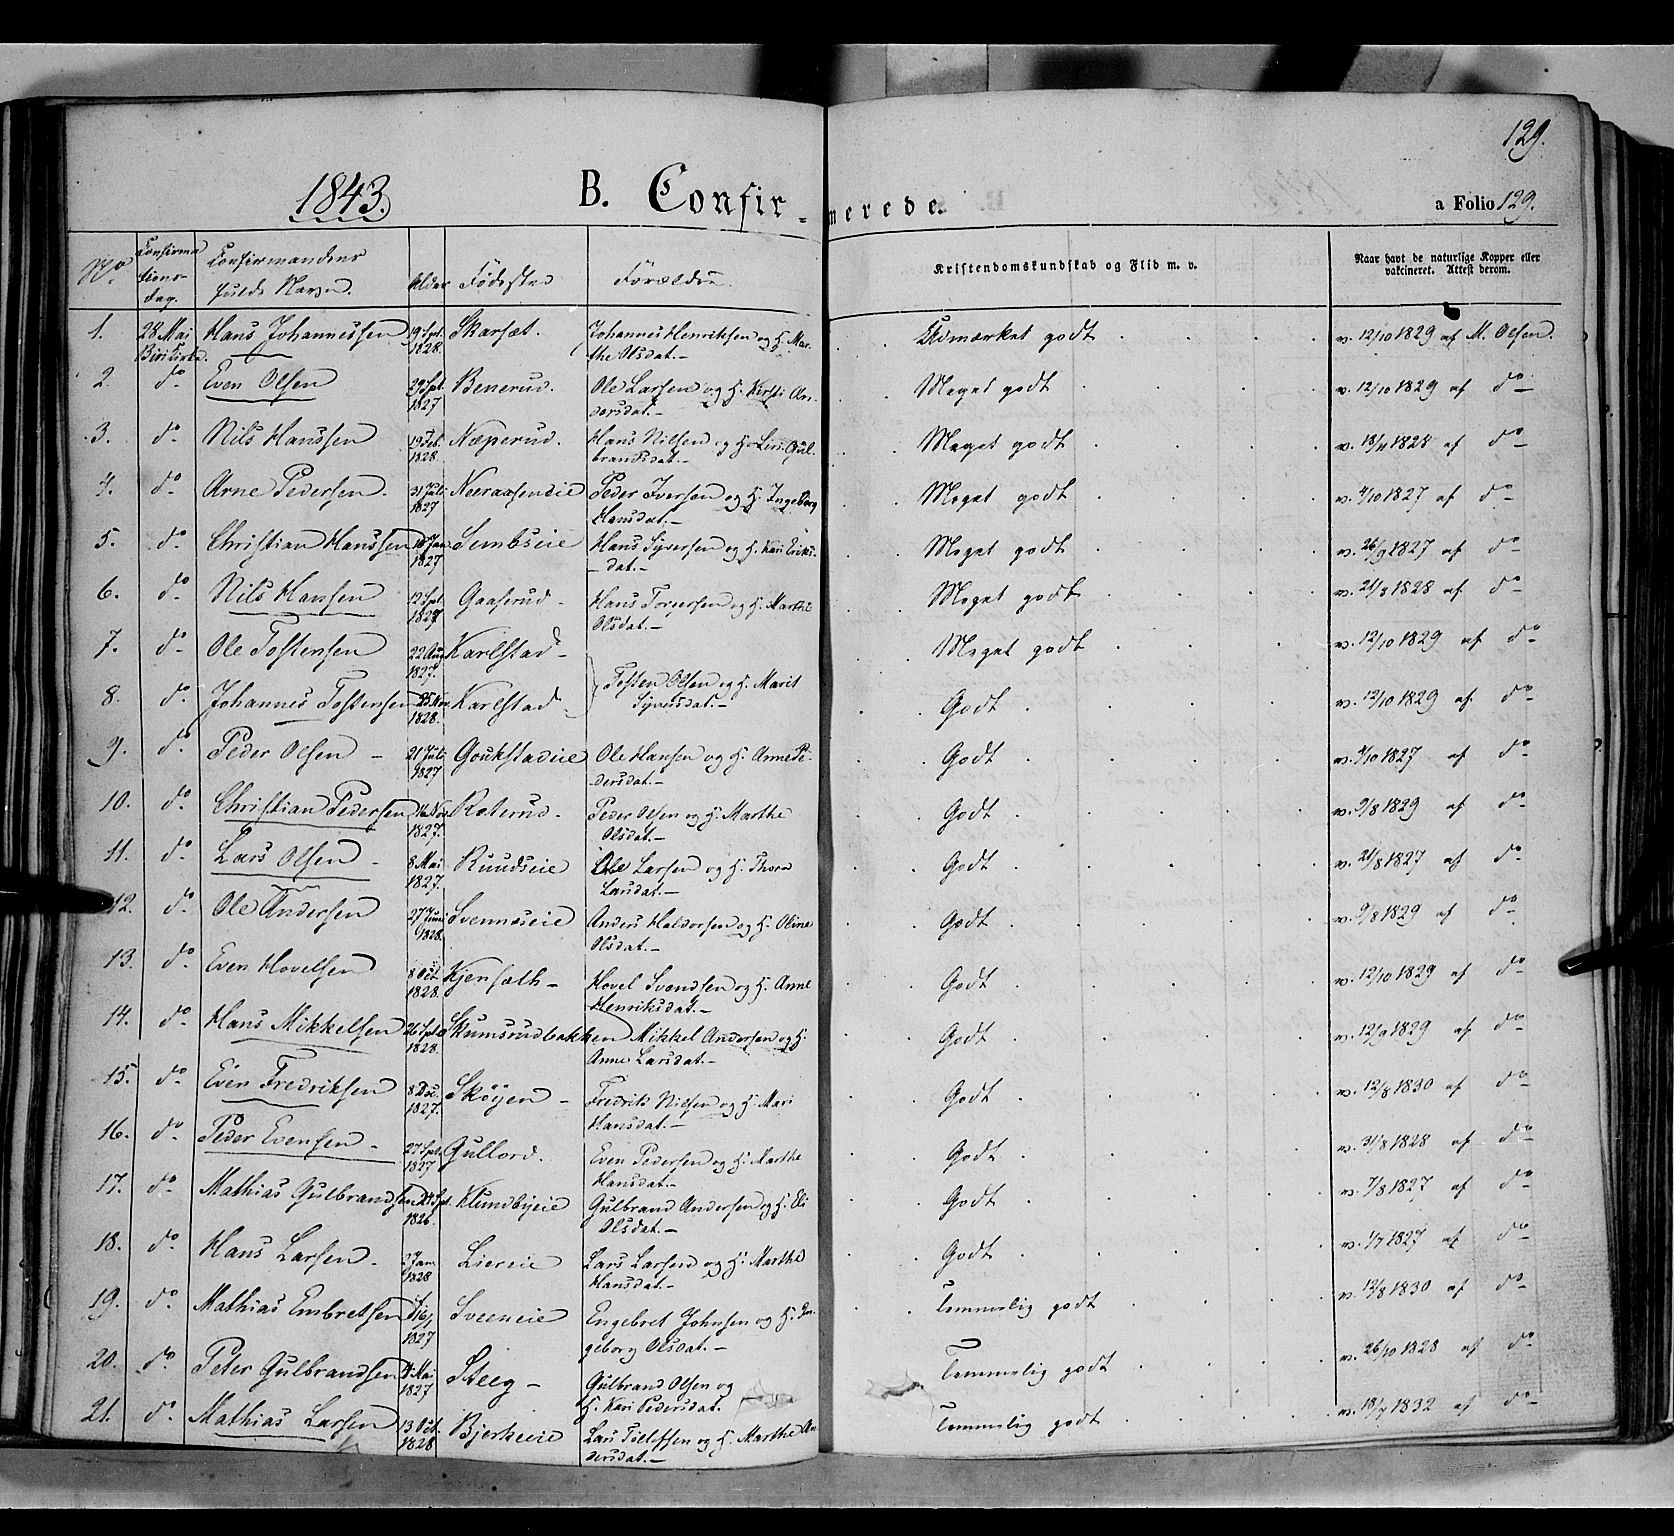 129.
1843.
B. Confir-
merede.
a Folio 129.
No.
Confirma
tions-
dag.
Confirmandens
fulde Navn.
Alder
Födested
Forældre.
Kristendomskundskab og Flid m. v.
Naar havt de naturlige Kopper eller
vakcineret. Attest derom.
1. 28 Mai Hans Johannessen 19 Spt. Skarsæt. Johannes Henriksen og H. Mar- Udmærket godt v. 12/10 1829 af M. Olsen.
Biri Kirke. 1828. the Olsdat.-
2. do Even Olsen 29 Spt. Benerud. Ole Larsen og H. Kersti An- Meget godt v. 12/10 1829 af do
1827 dersdat.-
3. do Nils Hanssen 19 Feb. Næperud. Hans Nilsen og H. Lisi Gul- Meget godt v. 18/11 1828 af do
1828. brandsdat.-
4. do Arne Pedersen. 31 Juli Neeraaseneie Peder Iversen og H. Ingeborg Meget godt v. 4/10 1827 af do
1827 Hansdat.-
5. do Christian Hanssen Jan. Sembseie Hans Syversen og H. Kari Eriks- Meget godt v. 26/9 1827 af do
1827 dat.-
6. do Nils Hansen 12 Spt. Gaaserud. Hans Torgersen og H. Marthe Meget godt v. 21/3 1828 af do
1827 Olsdat.-
7. do Ole Tostensen 22 Aug Karlstad- Meget godt v. 12/10 1829 af do
1827. Tosten Olsen og H. Marit
8. do Johannes Tostensen 25 Nov. Karlstad. Syversdat.- Godt v. 12/10 1829 af do
1828.
9. do Peder Olsen - 21 Juli Goukstadeie Ole Hansen og H. Anne Pe- Godt v. 4/10 1827 af do
1827 dersdat.-
10. do Christian Pedersen 16 Nov Roterud- Peder Olsen og H. Marthe Godt v. 9/8 1829 af do
1827. Olsdat.-
11. do Lars Olsen - 8 Mai Ruudseie Ole Larsen og H. Thora Godt v. 21/8 1827 af do
1827. Larsdat.-
12. do Ole Andersen 27 Juni Svennseie Anders Haldorsen og H. Oline Godt v. 9/8 1829 af do
1828. Olsdat.-
13. do Even Hovelsen 8 Oct. Kjensæth- Hovel Svendsen og H. Anne Godt v. 12/10 1829 af do
1828. Henriksdat.-
14. do Hans Mikkelsen 26 Spt. Skumsrudbakken Mikkel Andersen og H. Godt v. 12/9 1829 af do
1828. Anne Larsdat.-
15. do Even Fredriksen 8 Dec. Sköyen - Fredrik Nilsen og H. Mari Godt v. 12/8 1830 af do
1827. Hansdat.-
16. do Peder Evensen - 27 Spt. Gullord. Even Pedersen og H. Marthe Godt v. 31/8 1828 af do
1827 Hansdat.-
17. do Mathias Gulbrandsen 24 Spt. Klundbyeie Gulbrand Andersen og H. Eli Godt v. 7/8 1827 af do
1826. Olsdat.-
18. do Hans Larsen - 2 Jan. Liereie Lars Larsen og H. Marthe Godt v. 1/7 1827 af do
1828 Hansdat.-
19. do Mathias Embretsen Sveeneie Engebret Johnsen og H. In- temmelig godt v. 12/8 1830 af do
1827 geborg Olsdat.-
20. do Peter Gulbrandsen Mai Steeg - Gulbrand Olsen og temmelig godt v. 26/10 1828 af do
1827 H. Kari Pedersdat.
21. do Mathias Larsen 13 Oct. Bjerkeeie Lars Tollefsen og H. Marthe An- temmelig godt v. 18/7 1832 af do
1828 dersdat.-